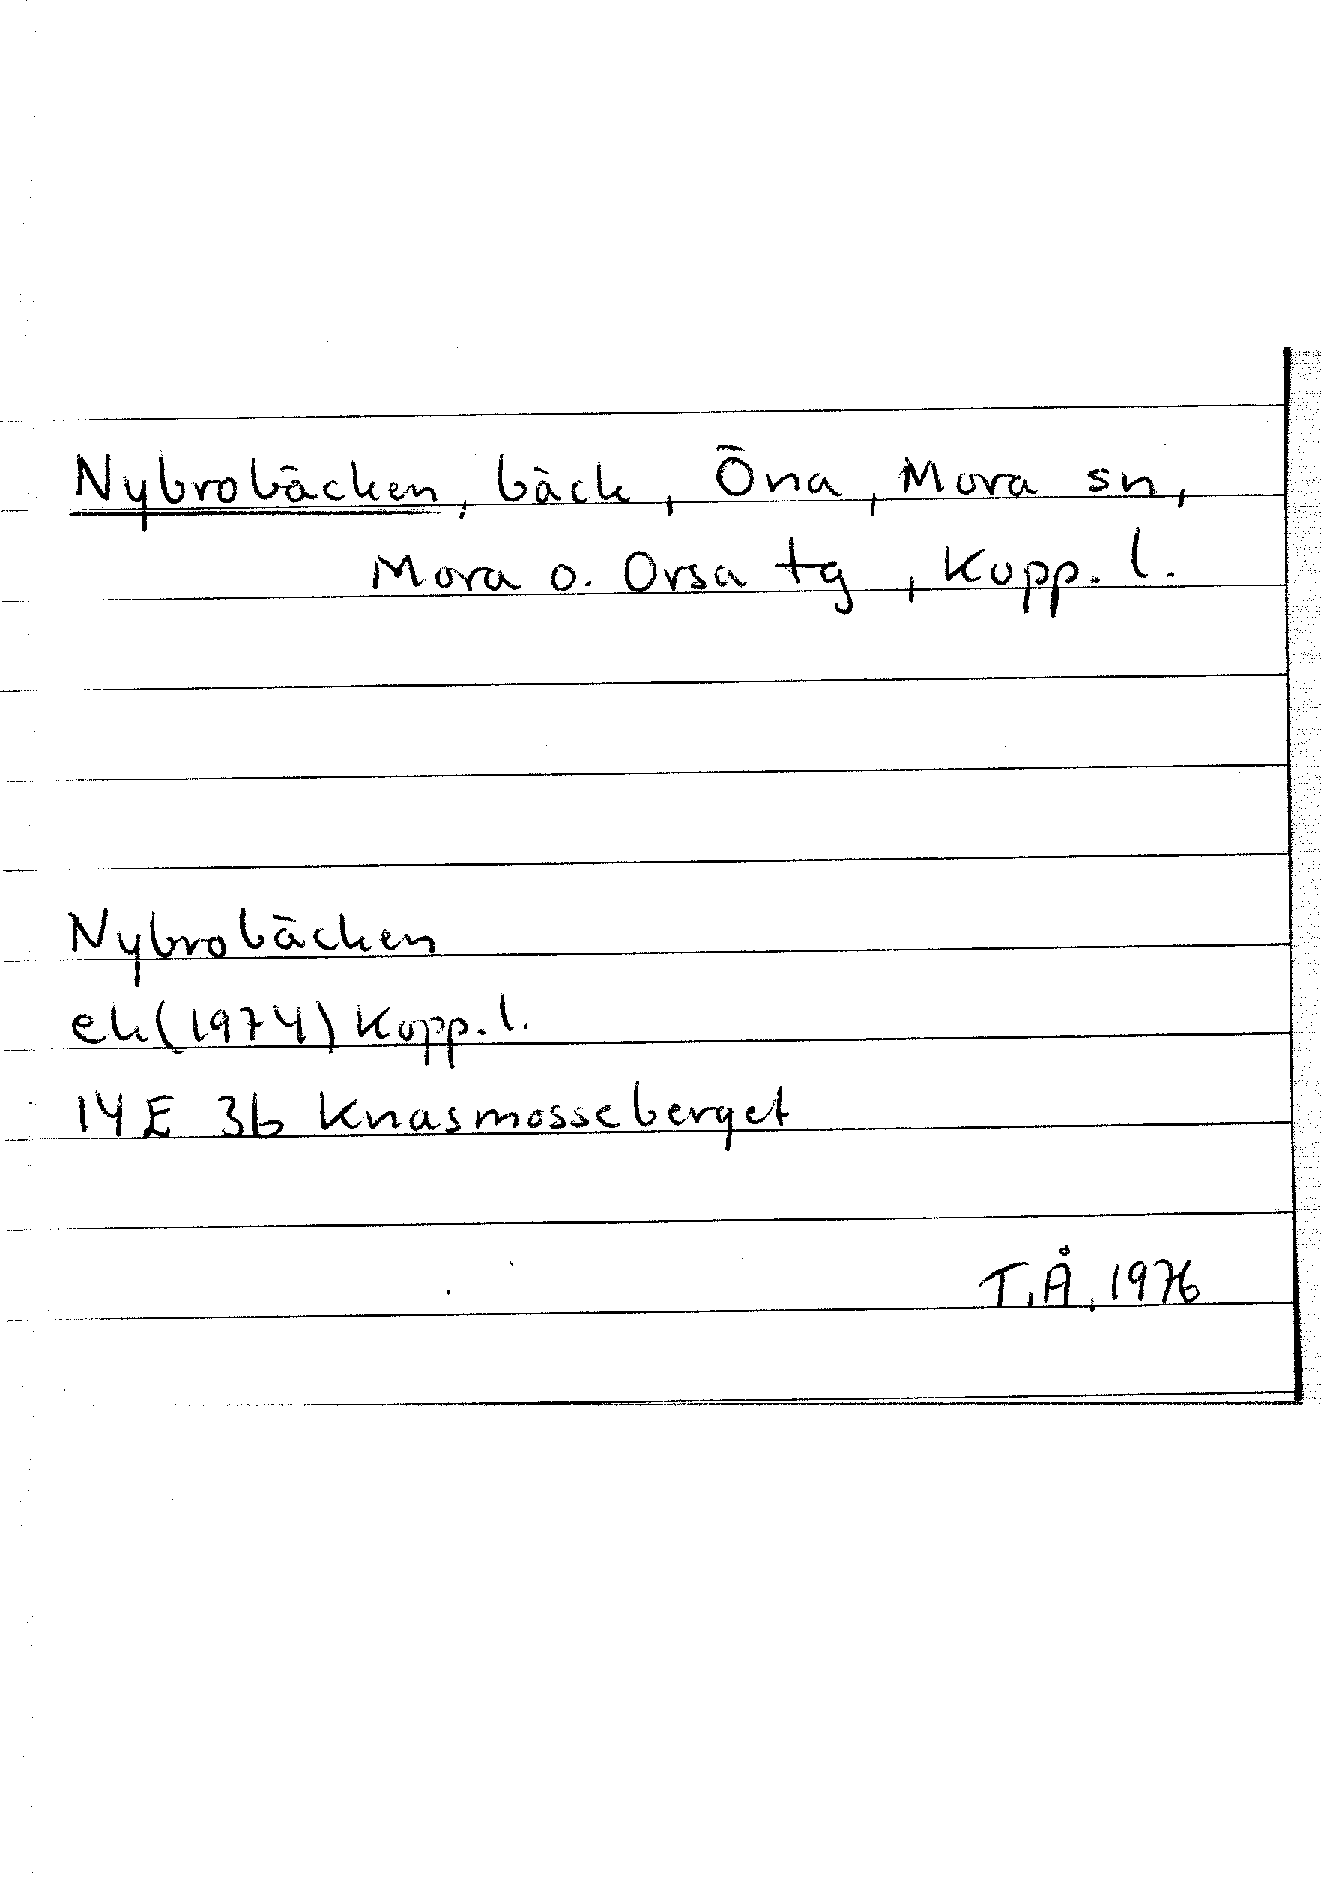 Nybrobäcken, bäck, Öna, Mora sn,
Mora o. Orsa tg, Kopp. l.
Nybrobäcken
ek (1974) Kopp. l.
14 E 3b Knasmosseberget
T.Å, 1976